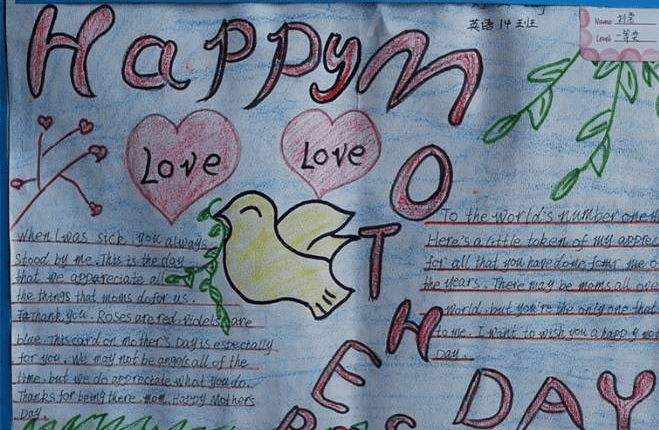 Happy
MOTHER
DAY
英语14班
Name
Level 一等奖
Love
Love
When I was sick, you always
stood by me. This is the day
that we appareciate all
the things that moms do for us.
To thank you. Roses are red. violets are
blue. This card on mother's Day is especially
for you. We may not be angels all of the
time. but we do appreciate what you do.
Thanks for being there mom. Happy Mothers
Day.
To the world's number one
Here's a little token of my
for all that you have done for me
the years. There may be moms all over
world. but you're the only one that
to me. I want to wish you a happy
Day.